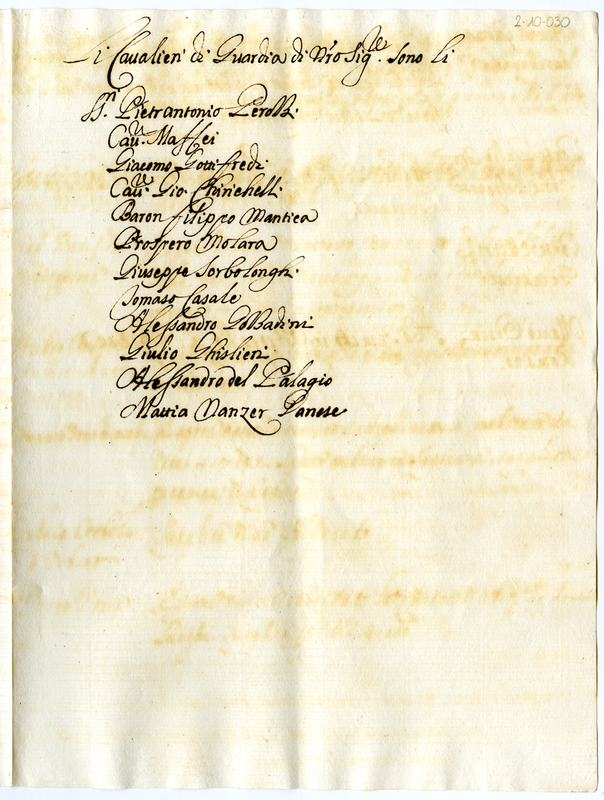 2-10-030
Li Cavalieri di Guardia di N'ro Sig.re sono li
SS.ri Pietrantonio Perotti
Cav.r Maffei
Giacomo Gottifredi
Cav.r Gio. Chirichelli
Baron filippo Mantica
Prospero Molara
Giuseppe Sorbolonghi
Tomaso Casale
Alessandro Gobbadini
Giulio Ghislieri
Alessandro del Palagio
Mattia Danese